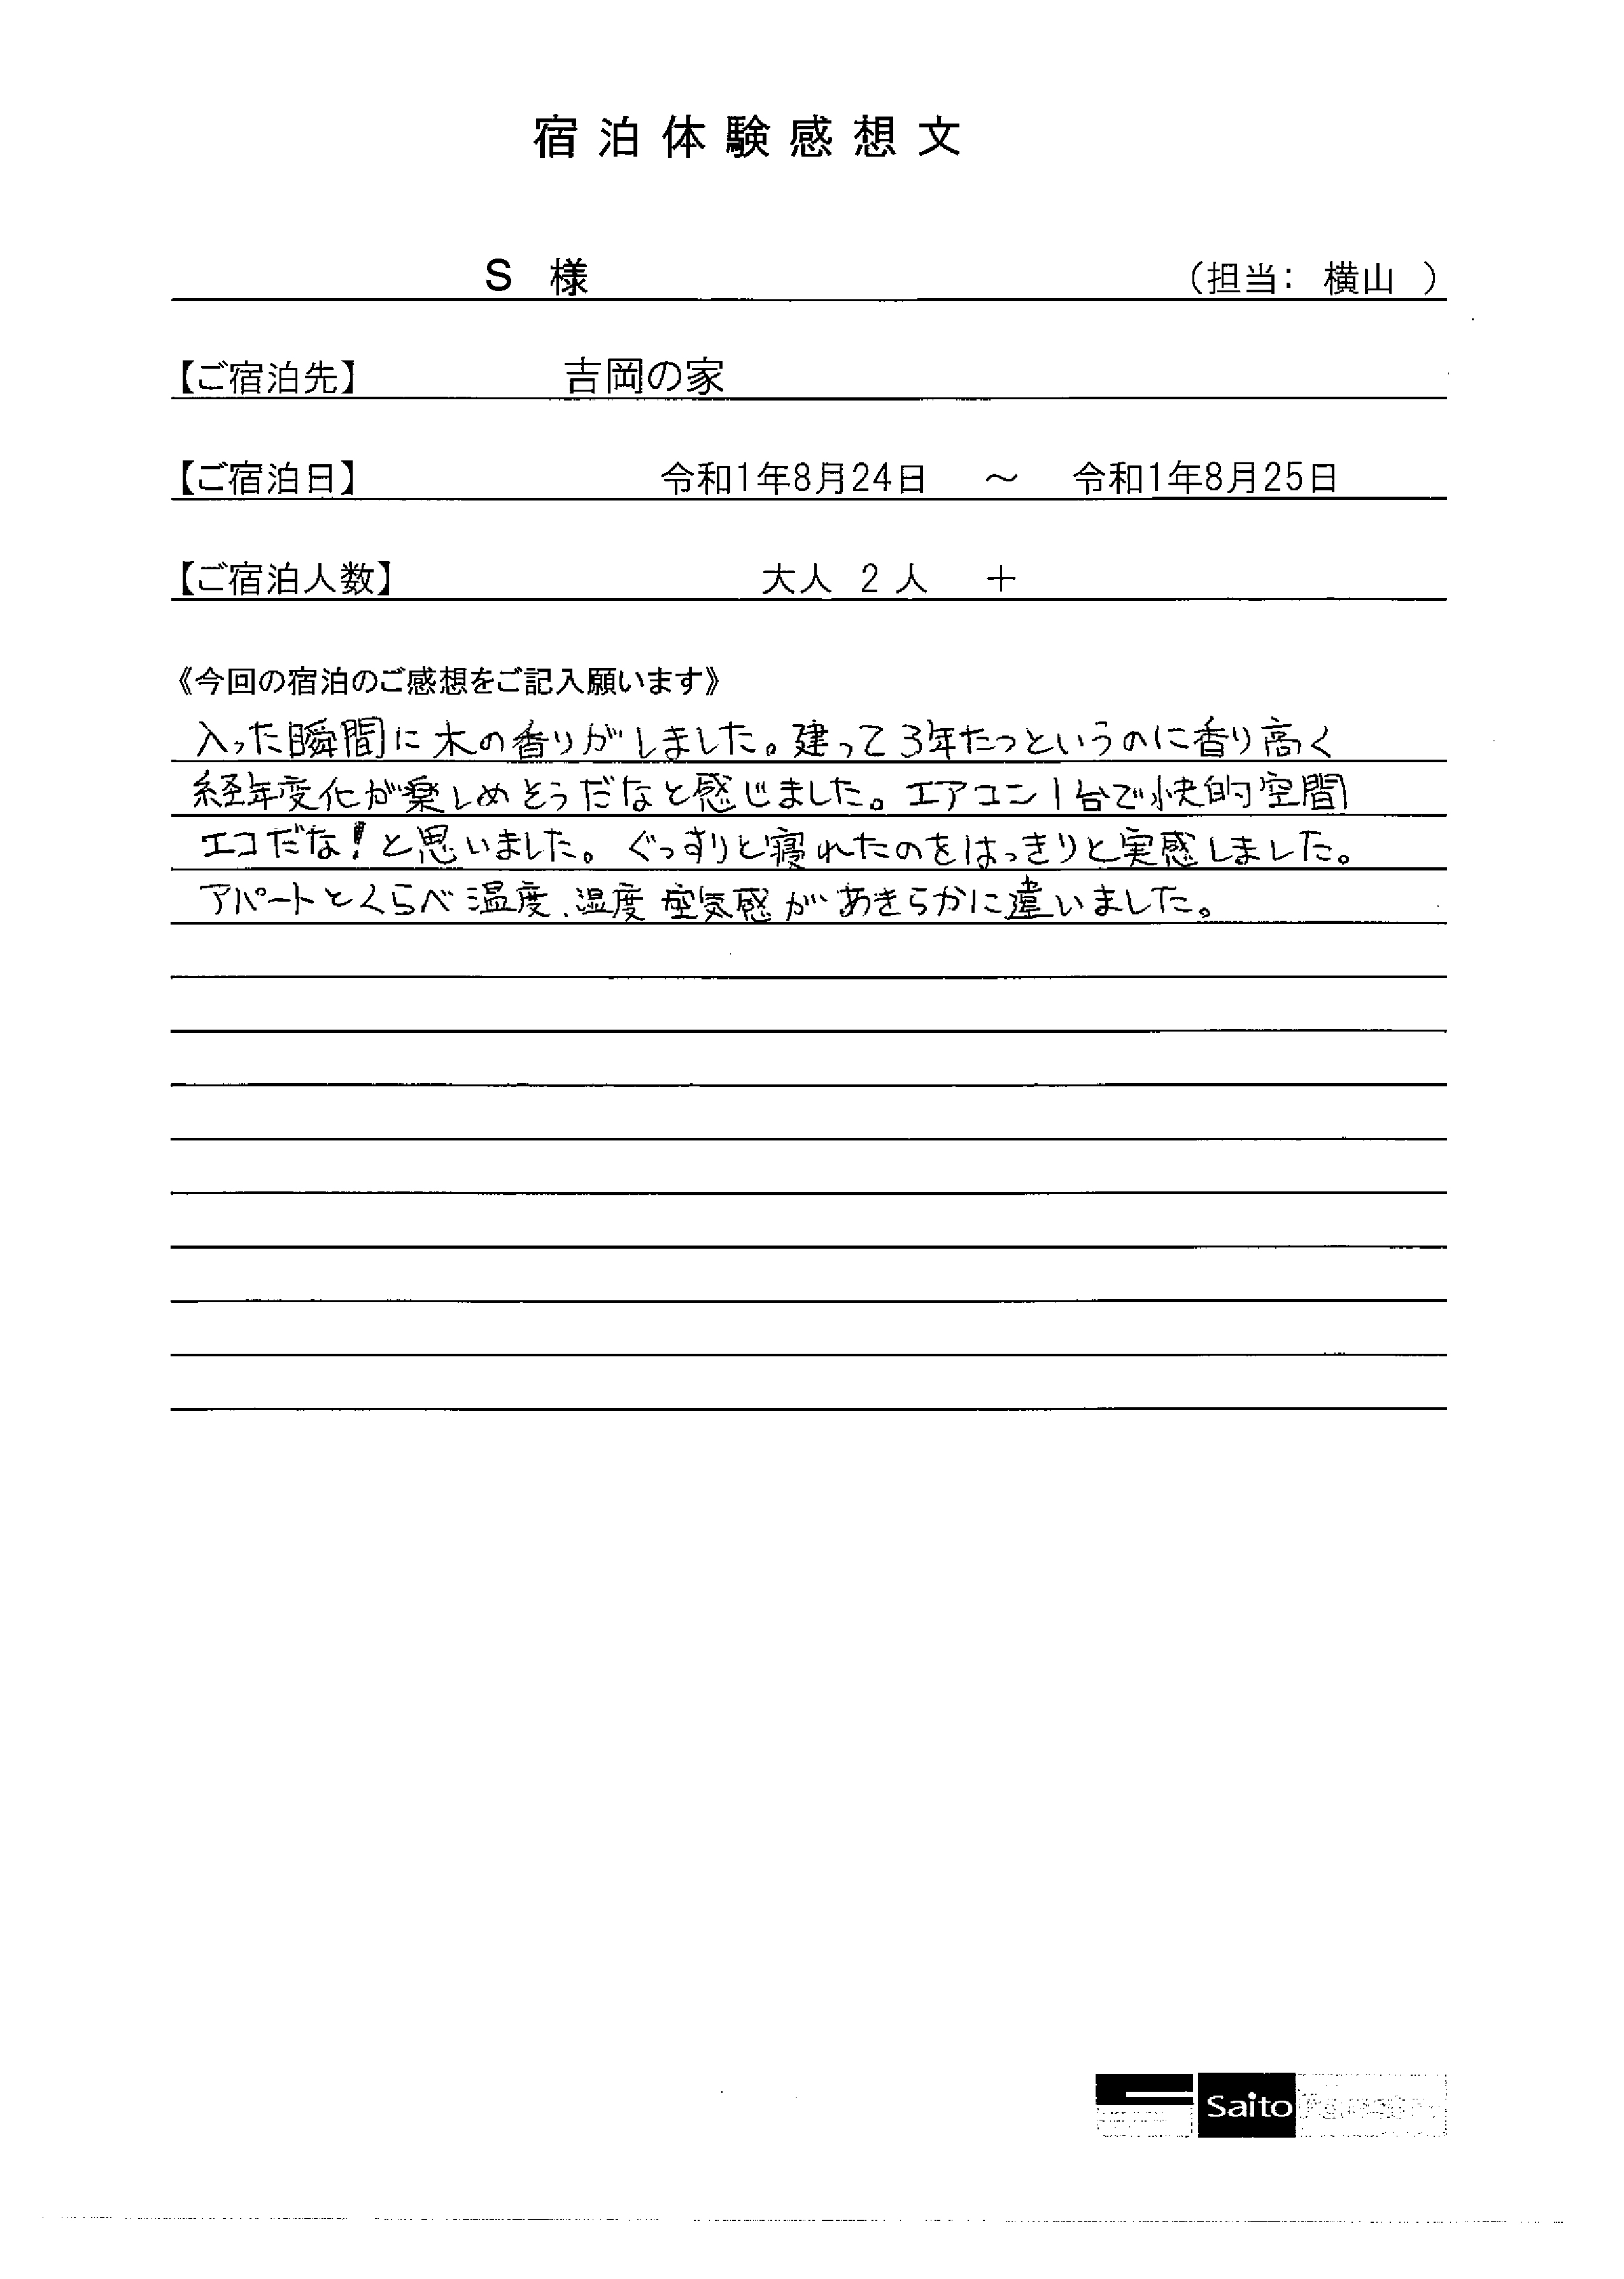 宿泊体験感想文
S 様 (担当: 横山 )
【ご宿泊先】 吉岡の家
【ご宿泊日】 令和1年8月24日 ～ 令和1年8月25日
【ご宿泊人数】 大人 2 人 ＋
《今回の宿泊のご感想をご記入願います》
入った瞬間に木の香りがしました。建って3年たつというのに香り高く
経年変化が楽しめそうだなと感じました。エアコン1台で快的空間
エコだな!と思いました。ぐっすりと寝れたのをはっきりと実感しました。
アパートとくらべ温度、湿度 空気感があきらかに違いました。
Saito